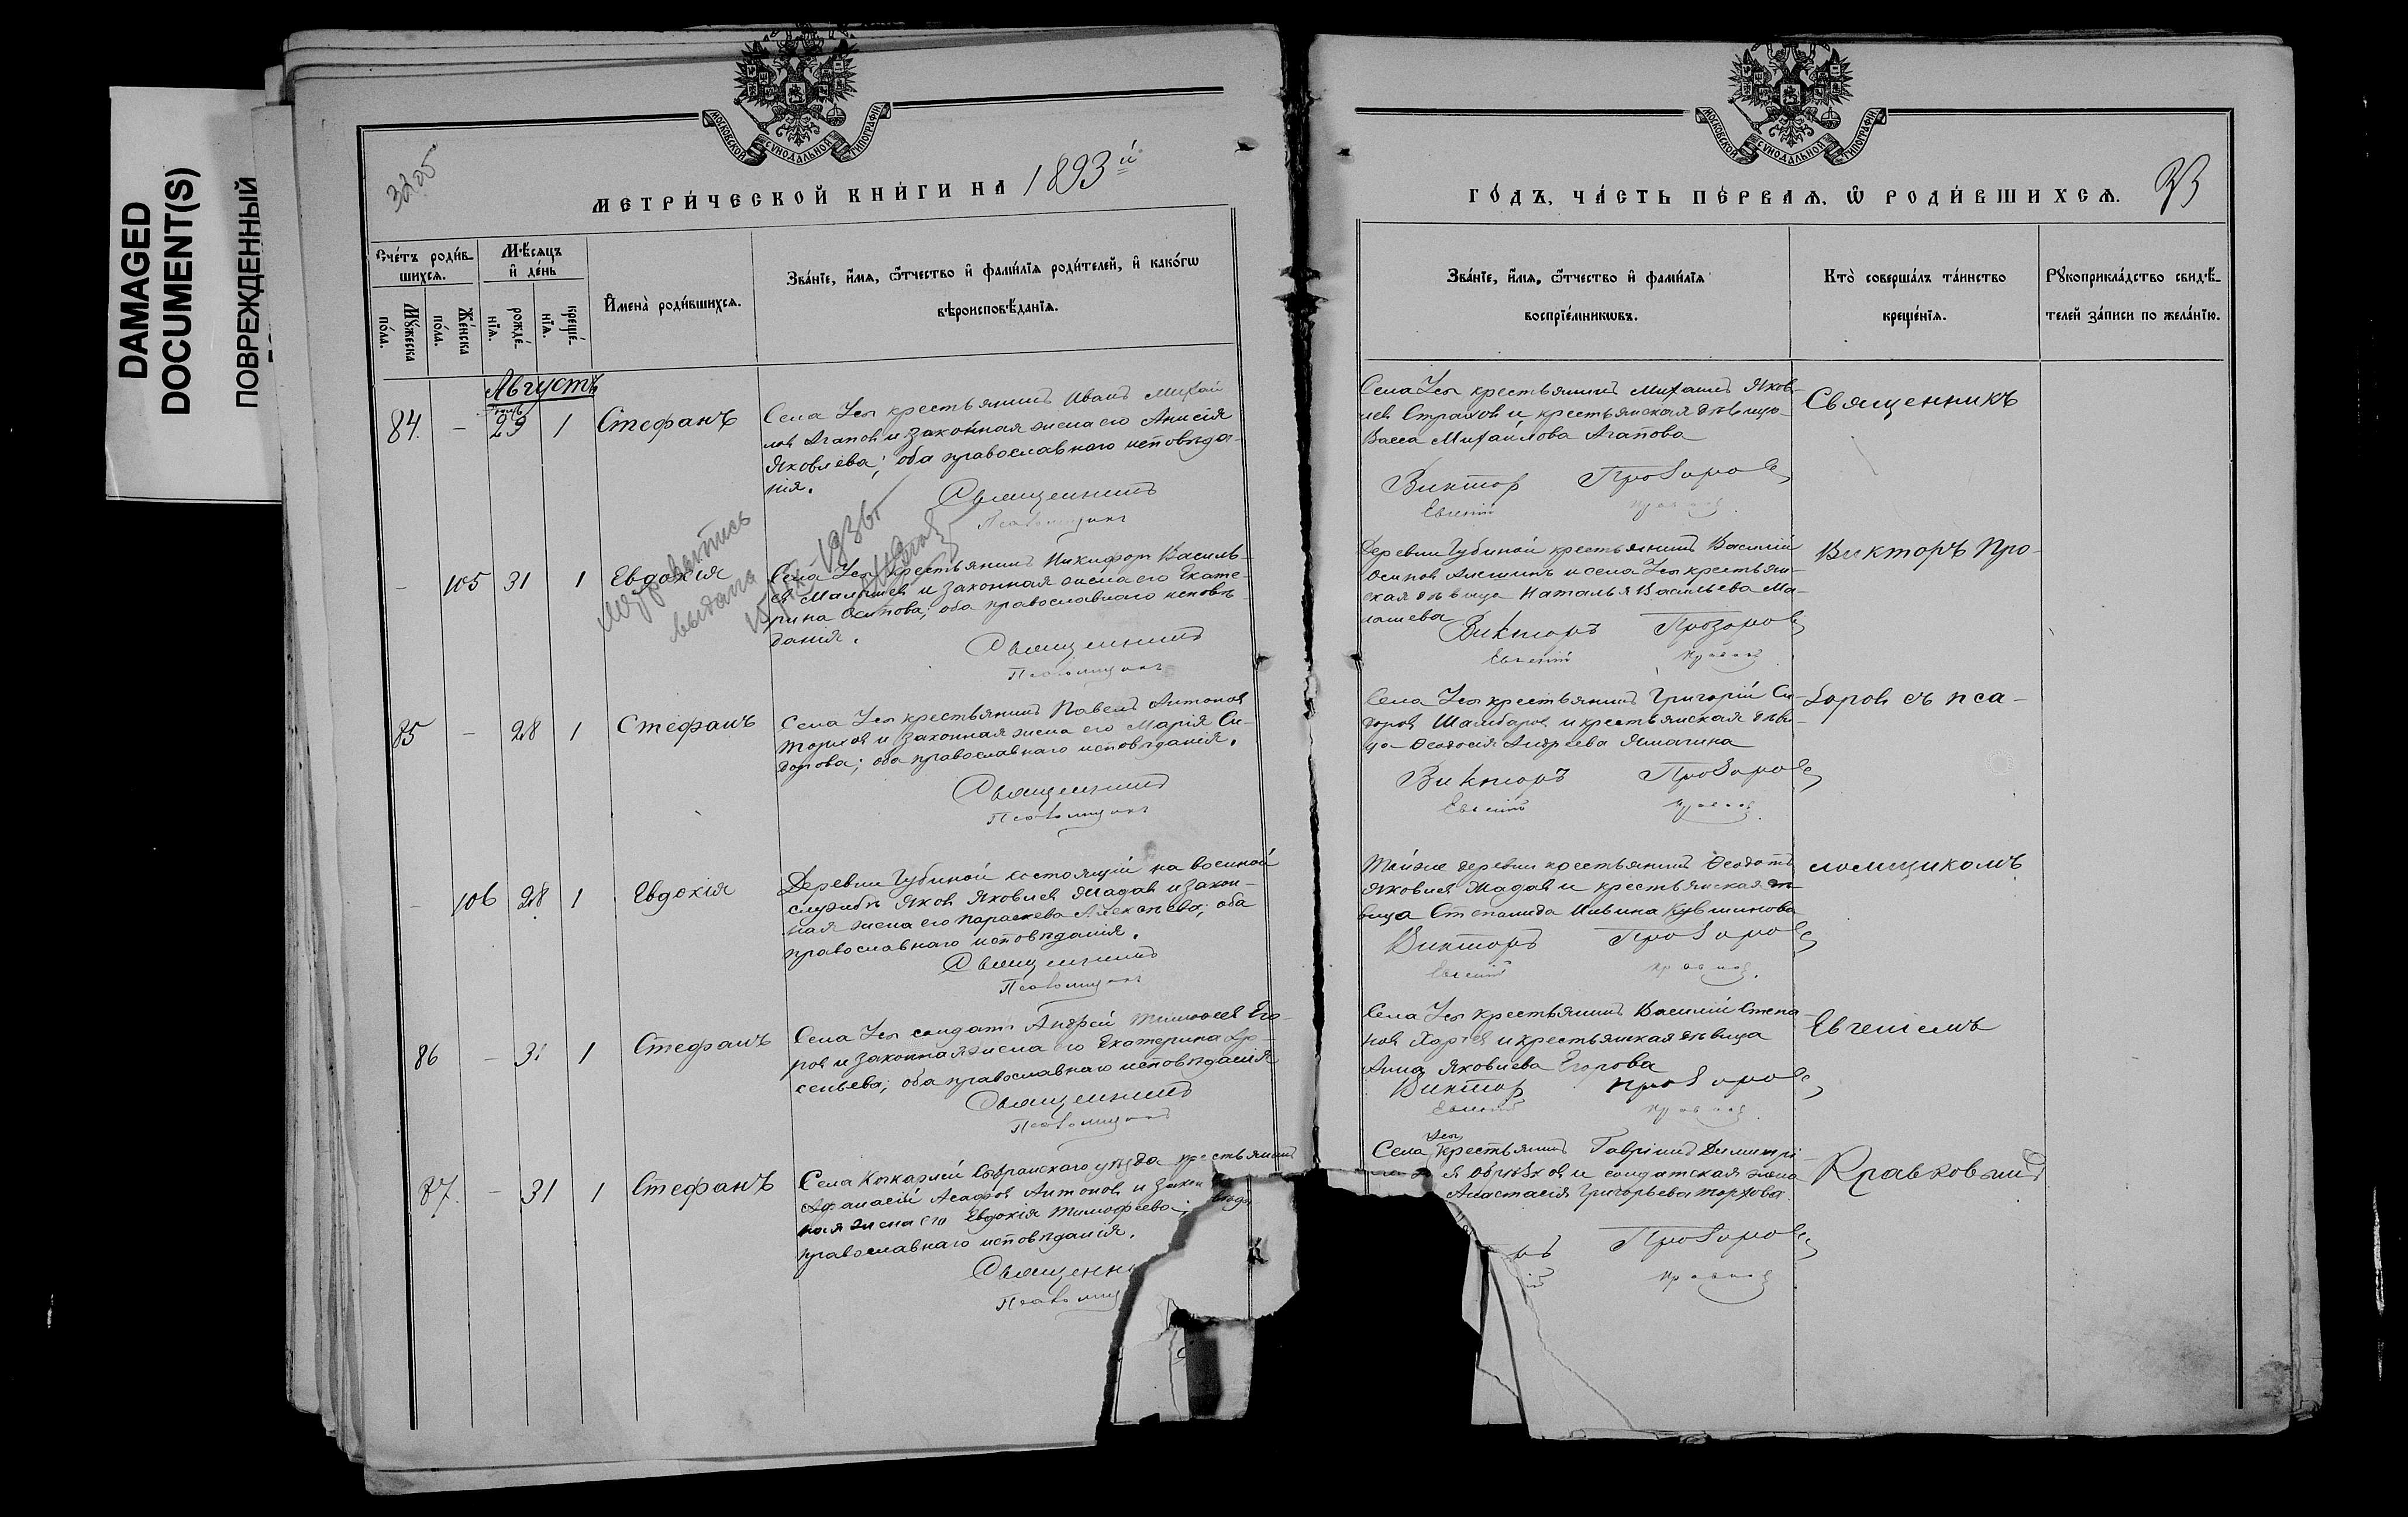 DAMAGED
DOCUMENT(S)
ПОВРЕЖДЕННЫЙ
МОСКОВСКОЙ СѴНОДАЛЬНОЙ ТИПОГРАФІИ
МЕТРИ́ЧЕСКОЙ КНИ́ГИ НА 1893й
Счéтъ роди́в-
шихсѧ.
Мѹ́жеска
по́ла.
Же́нска
по́ла.
Мѣ́сѧцъ
и҆ де́нь
рожде́-
нїѧ.
креще́-
нїѧ.
И҆мена̀ роди́вшихсѧ.
Зва́нїе, и҆́мѧ, ѻ҆́тчество и҆ фами́лїѧ роди́телей, и҆ како́гѡ
вѣроисповѣ́данїѧ.
Августъ
84. — 29 1 Стефанъ
Села Усы крестьянинъ Иванъ Михай
лов Агапов и законная жена его Анисія
Яковлева; оба православнаго исповѣда-
нія.
Священникъ
Псаломщикъ
выдана
1936г
— 105 31 1 Евдокія
Села Усы крестьянинъ Никифоръ Василь-
ев Малышев и законная жена его Екате-
рина Осипова; оба православнаго исповѣ-
данія.
Священникъ
Псаломщикъ
85 — 28 1 Стефанъ
Села Усы крестьянинъ Павелъ Антонов
и законная жена его Марія Си-
дорова; оба православнаго исповѣданія.
Священникъ
Псаломщикъ
— 106 28 1 Евдокія
Деревни Губиной состоящій на военной
службѣ Яков Яковлев Мадав и закон-
ная жена его Параскева Алексѣева; оба
православнаго исповѣданія.
Священникъ
Псаломщикъ
86 — 31 1 Стефанъ
Села Усы солдатъ Андрей Тимофеев Его-
ров и законная жена его Екатерина Ар-
сеньева; оба православнаго исповѣданія
Священникъ
Псаломщикъ
87. — 31 1 Стефанъ
Села Сызранскаго уѣзда крестьянинъ
Афанасій Антонов и закон
ная жена его Евдокія Тимофеева;
православнаго исповѣданія.
Священни
Псаломщ
МОСКОВСКОЙ СѴНОДАЛЬНОЙ ТИПОГРАФІИ
ГО́ДЪ, ЧА́СТЬ ПЕ́РВАѦ, Ѡ҆ РОДИ́ВШИХСѦ.
33
Зва́нїе, и҆́мѧ, ѻ҆́тчество и҆ фами́лїѧ
воспрїе́мникѡвъ.
Кто̀ соверша́лъ та́инство
креще́нїѧ.
Рѹкоприкла́дство свидѣ́-
телей за́писи по жела́нїю.
Села Усы крестьянинъ Михаилъ Яков-
лев Страхов и крестьянская дѣвица
Васса Михайлова Агапова
Виктор Прозоров
Евгеній
Деревни Губиной крестьянинъ Василій
Осипов Алешинъ и села Усы крестьян-
ская дѣвица Наталья Васильева Ма-
лашева
Викторъ Прозоров
Евгеній
Села Усы крестьянинъ Григорій Си-
доров Шамбаров и крестьянская дѣви-
ца Ѳеодосія Андреева
Викторъ Прозоров
Евгеній
Той же деревни крестьянинъ Ѳеодотъ
Яковлев Мадав и крестьянская дѣ-
вица Степанида Ильина Кувшинова
Викторъ Прозоров
Евгеній
Села Усы крестьянинъ Василій Степа-
нов и крестьянская дѣвица
Анна Яковлева Егорова
Виктор Прозоров
Евгеній
Села Усы крестьянинъ Гавріилъ Димитрі-
и солдатская жена
Анастасія Григорьева Торхова.
ръ Прозоров
ій
Священникъ
Викторъ Про-
зоровъ съ пса-
ломщикомъ
Евгеніемъ
Кравковымъ